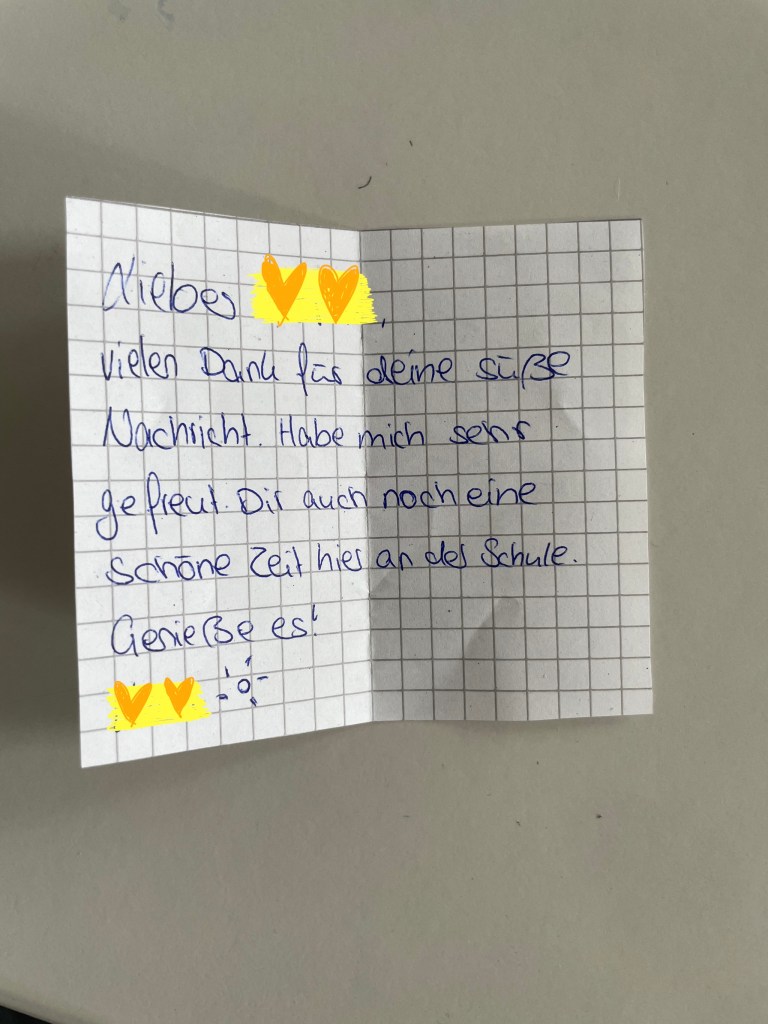 Lieber ,
vielen Dank für deine süße
Nachricht. Habe mich sehr
gefreut. Dir auch noch eine
schöne Zeit hier an der Schule.
Genieße es!